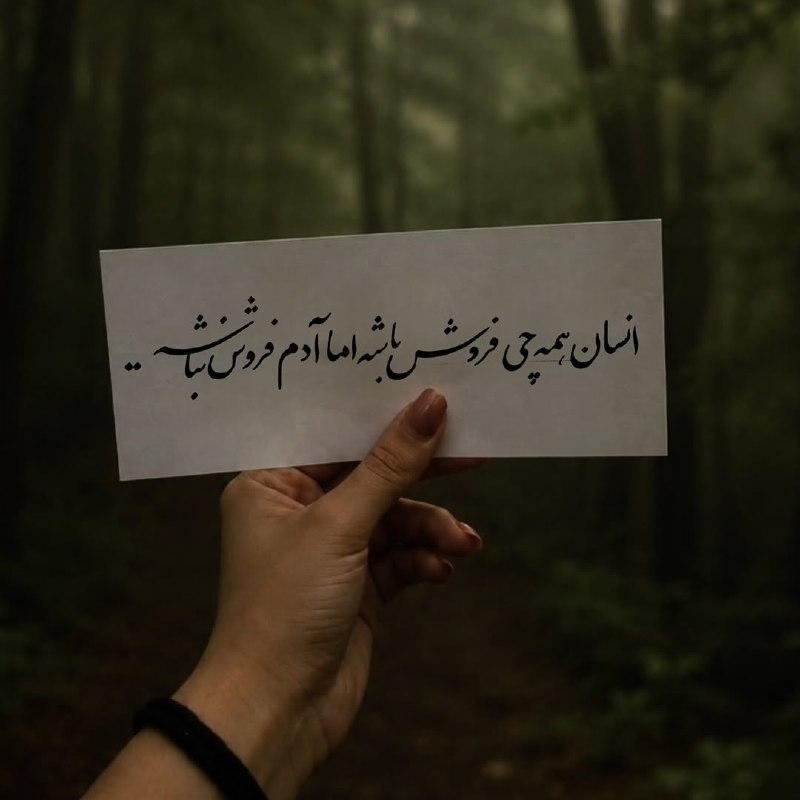 انسان همه چی فروش باشه اما آدم فروش نباشه ..